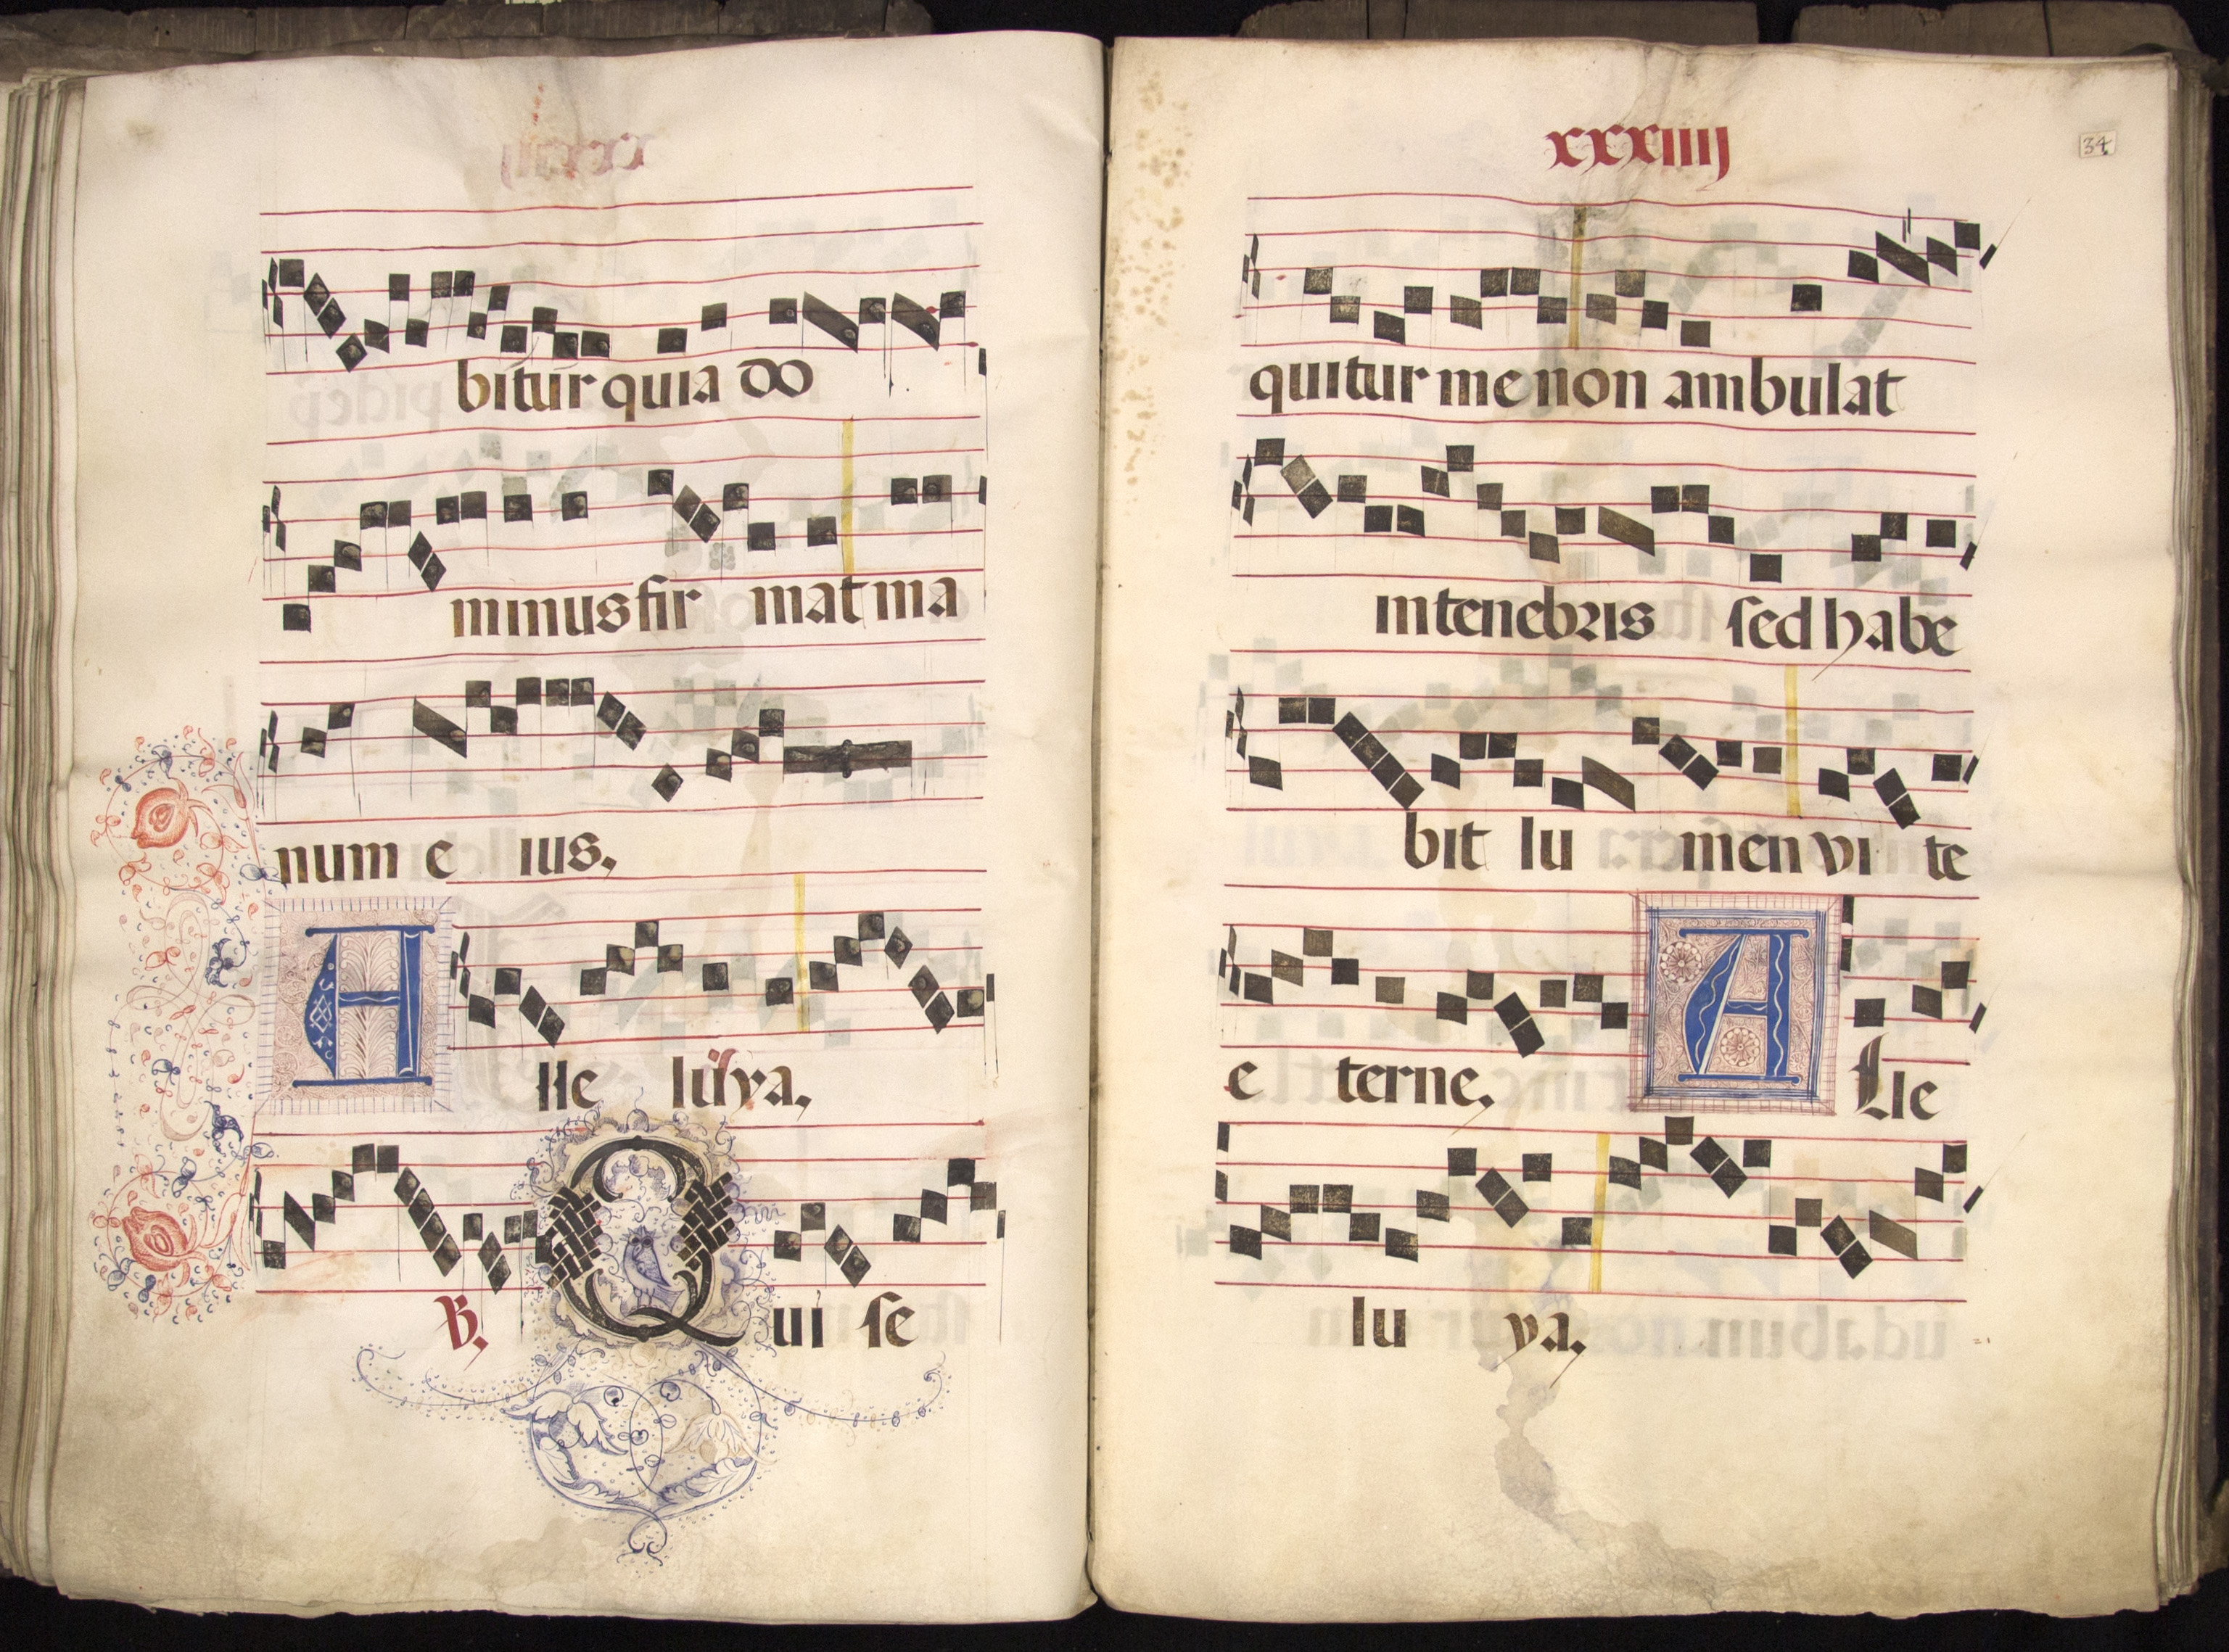 bitur quia do
minus fir mat ma
num e ius.
A lle luya.
B. Qui se
xxxiiij
34
quitur me non ambulat
in tenebris sed habe
bit lu men vi te
e terne. A lle
lu ya.